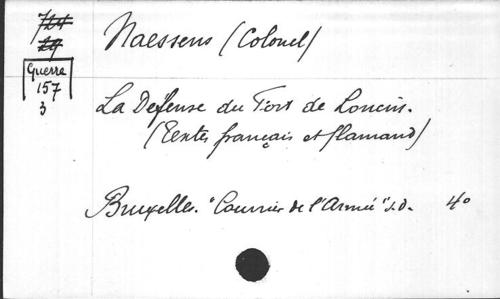 Naessens (Colonel)
Guerre
157
3
La Défense du Fort de Loncin.
(Textes français et flamand)
Bruxelles. "Courrier de l'Armée" s.d. 4°